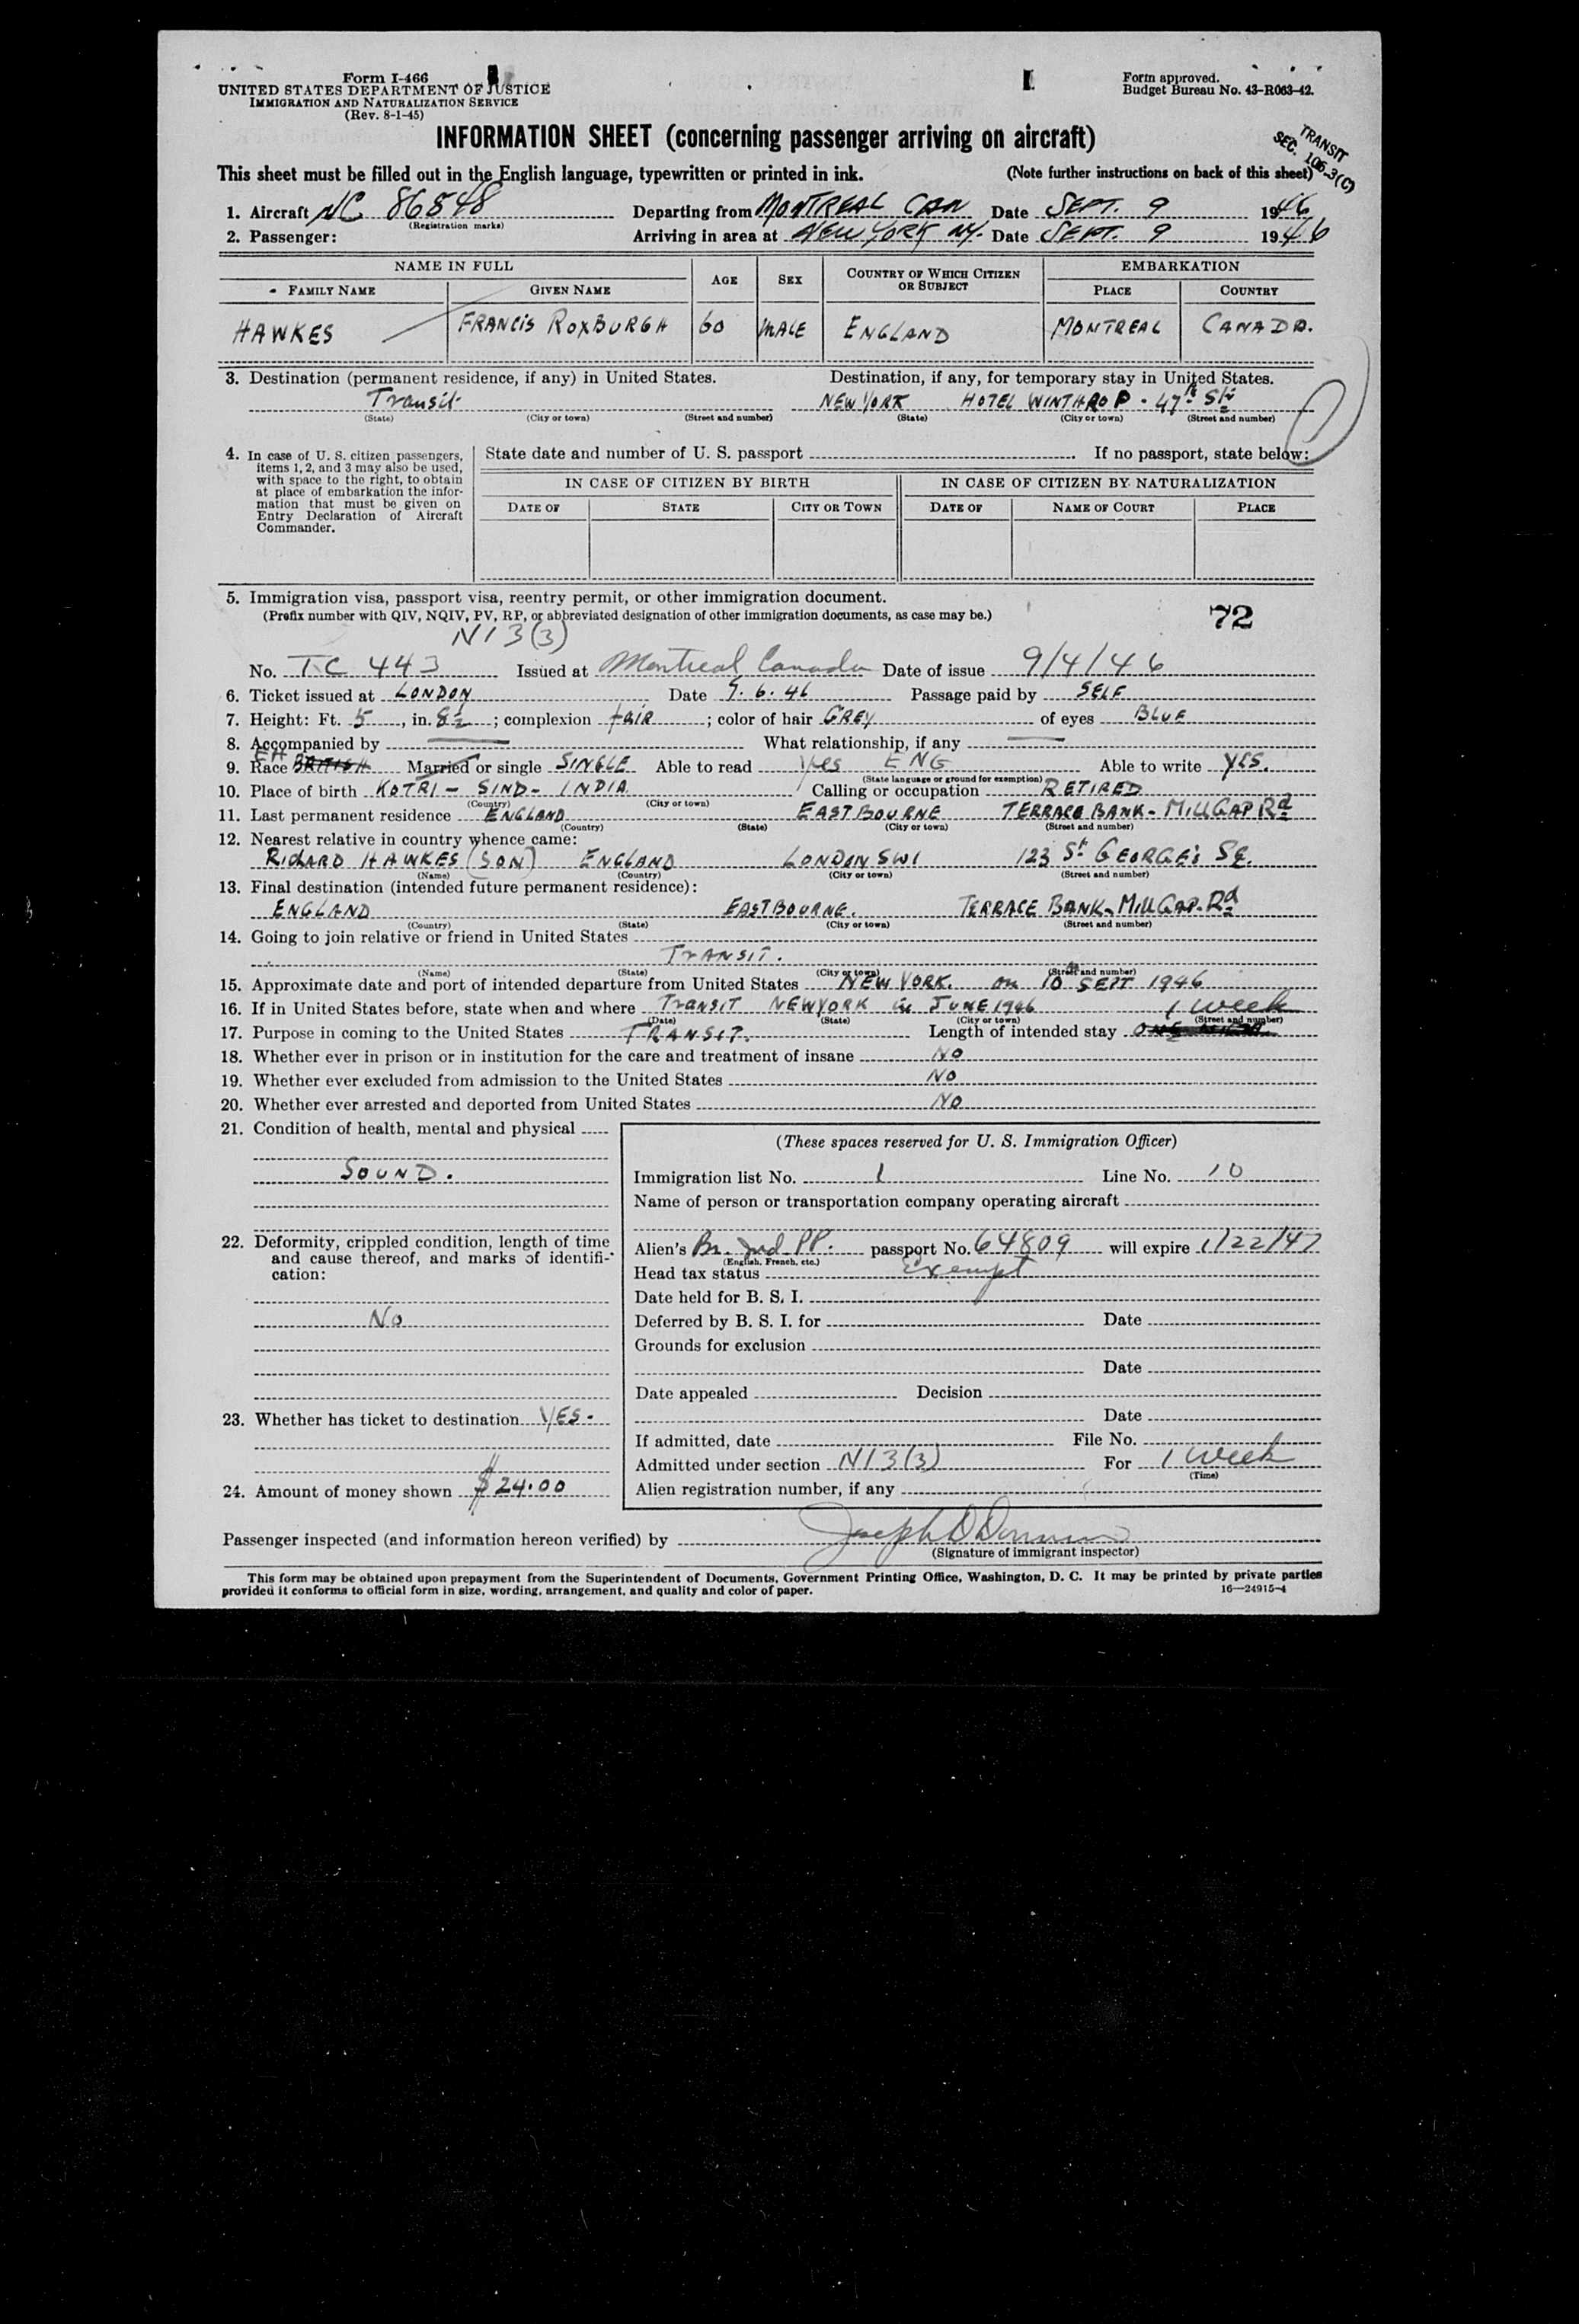 Form I-466
UNITED STATES DEPARTMENT OF JUSTICE
IMMIGRATION AND NATURALIZATION SERVICE
(Rev. 8-1-45)
Form approved.
Budget Bureau No. 43-R063-42.
INFORMATION SHEET (concerning passenger arriving on aircraft)
TRANSIT
SEC. 106-3(C)
This sheet must be filled out in the English language, typewritten or printed in ink. (Note further instructions on back of this sheet)
1. Aircraft NC 86848 Departing from MONTREAL CAN Date SEPT. 9 1946
(Registration marks)
2. Passenger: Arriving in area at NEW YORK NY. Date SEPT. 9 1946
NAME IN FULL AGE SEX COUNTRY OF WHICH CITIZEN OR SUBJECT EMBARKATION
FAMILY NAME GIVEN NAME PLACE COUNTRY
HAWKES FRANCIS ROXBURGH 60 MALE ENGLAND MONTREAL CANADA.
3. Destination (permanent residence, if any) in United States. Destination, if any, for temporary stay in United States.
Transit NEW YORK HOTEL WINTHROP - 47th St
(State) (City or town) (Street and number) (State) (City or town) (Street and number)
4. In case of U. S. citizen passengers, items 1, 2, and 3 may also be used, with space to the right, to obtain at place of embarkation the information that must be given on Entry Declaration of Aircraft Commander.
State date and number of U. S. passport If no passport, state below:
IN CASE OF CITIZEN BY BIRTH IN CASE OF CITIZEN BY NATURALIZATION
DATE OF STATE CITY OR TOWN DATE OF NAME OF COURT PLACE
5. Immigration visa, passport visa, reentry permit, or other immigration document.
(Prefix number with QIV, NQIV, PV, RP, or abbreviated designation of other immigration documents, as case may be.)
72
N13(3)
No. TC 443 Issued at Montreal Canada Date of issue 9/4/46
6. Ticket issued at LONDON Date 5.6.46 Passage paid by SELF
7. Height: Ft. 5, in. 8½; complexion FAIR; color of hair GREY of eyes BLUE
8. Accompanied by What relationship, if any
9. Race BRITISH Married or single SINGLE Able to read yes ENG Able to write YES.
(State language or ground for exemption)
10. Place of birth KOTRI - SIND - INDIA Calling or occupation RETIRED
(Country) (City or town)
11. Last permanent residence ENGLAND EASTBOURNE TERRACE BANK - MILL GAP Rd
(Country) (State) (City or town) (Street and number)
12. Nearest relative in country whence came:
RICHARD HAWKES (SON) ENGLAND LONDON SW1 123 St GEORGE'S SQ.
(Name) (Country) (City or town) (Street and number)
13. Final destination (intended future permanent residence):
ENGLAND EASTBOURNE. TERRACE BANK - MILL GAP. Rd
(Country) (State) (City or town) (Street and number)
14. Going to join relative or friend in United States
TRANSIT.
(Name) (State) (City or town) (Street and number)
15. Approximate date and port of intended departure from United States NEW YORK. on 10 SEPT 1946
16. If in United States before, state when and where TRANSIT NEW YORK in JUNE 1946
(Date) (State) (City or town) (Street and number)
1 week
17. Purpose in coming to the United States TRANSIT. Length of intended stay
18. Whether ever in prison or in institution for the care and treatment of insane NO
19. Whether ever excluded from admission to the United States NO
20. Whether ever arrested and deported from United States NO
21. Condition of health, mental and physical
SOUND.
22. Deformity, crippled condition, length of time and cause thereof, and marks of identification:
No
23. Whether has ticket to destination YES.
24. Amount of money shown $24.00
(These spaces reserved for U. S. Immigration Officer)
Immigration list No. 1 Line No. 10
Name of person or transportation company operating aircraft
Alien's Br. Ind PP. passport No. 64809 will expire 1/22/47
(English, French, etc.)
Head tax status Exempt
Date held for B. S. I.
Deferred by B. S. I. for Date
Grounds for exclusion
Date
Date appealed Decision
Date
If admitted, date File No.
Admitted under section N13(3) For 1 week
(Time)
Alien registration number, if any
Passenger inspected (and information hereon verified) by
(Signature of immigrant inspector)
This form may be obtained upon prepayment from the Superintendent of Documents, Government Printing Office, Washington, D. C. It may be printed by private parties
provided it conforms to official form in size, wording, arrangement, and quality and color of paper.
16—24915-4